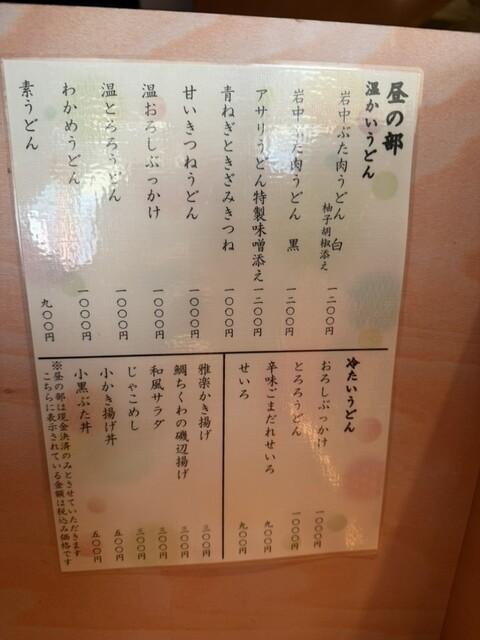 昼の部
温かいうどん
岩中ぶた肉うどん 白 一二〇〇円
柚子胡椒添え
岩中ぶた肉うどん 黒 一二〇〇円
アサリうどん特製味噌添え 一二〇〇円
青ねぎときざみきつね 一〇〇〇円
甘いきつねうどん 一〇〇〇円
温おろしぶっかけ 一〇〇〇円
温とろろうどん 一〇〇〇円
わかめうどん 一〇〇〇円
素うどん 九〇〇円
冷たいうどん
おろしぶっかけ 一〇〇〇円
とろろうどん 一〇〇〇円
辛味ごまだれせいろ 九〇〇円
せいろ 九〇〇円
雅楽かき揚げ 三〇〇円
鯛ちくわの磯辺揚げ 三〇〇円
和風サラダ 三〇〇円
じゃこめし 三〇〇円
小かき揚げ丼 五〇〇円
小黒ぶた丼 五〇〇円
※昼の部は現金決済のみとさせていただきます
こちらに表示されている金額は税込み価格です